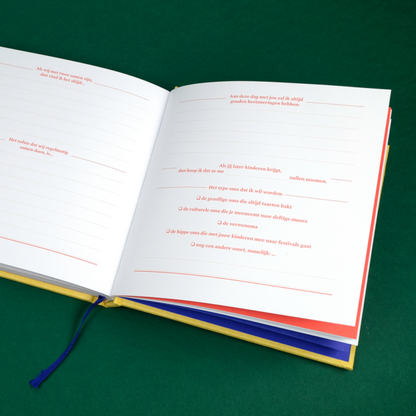 Als wij met twee samen zijn,
dan vind ik het altijd...
Het tofste dat wij regelmatig
samen doen, is...
Aan deze dag met jou zal ik altijd
gouden herinneringen hebben:
Als jij later kinderen krijgt,
dan hoop ik dat ze me
zullen noemen.
Het type oma dat ik wil worden:
❏ de gezellige oma die altijd taarten bakt
❏ de culturele oma die je meeneemt naar deftige musea
❏ de verwenoma
❏ de hippe oma die met jouw kinderen mee naar festivals gaat
❏ nog een andere soort, namelijk: ...